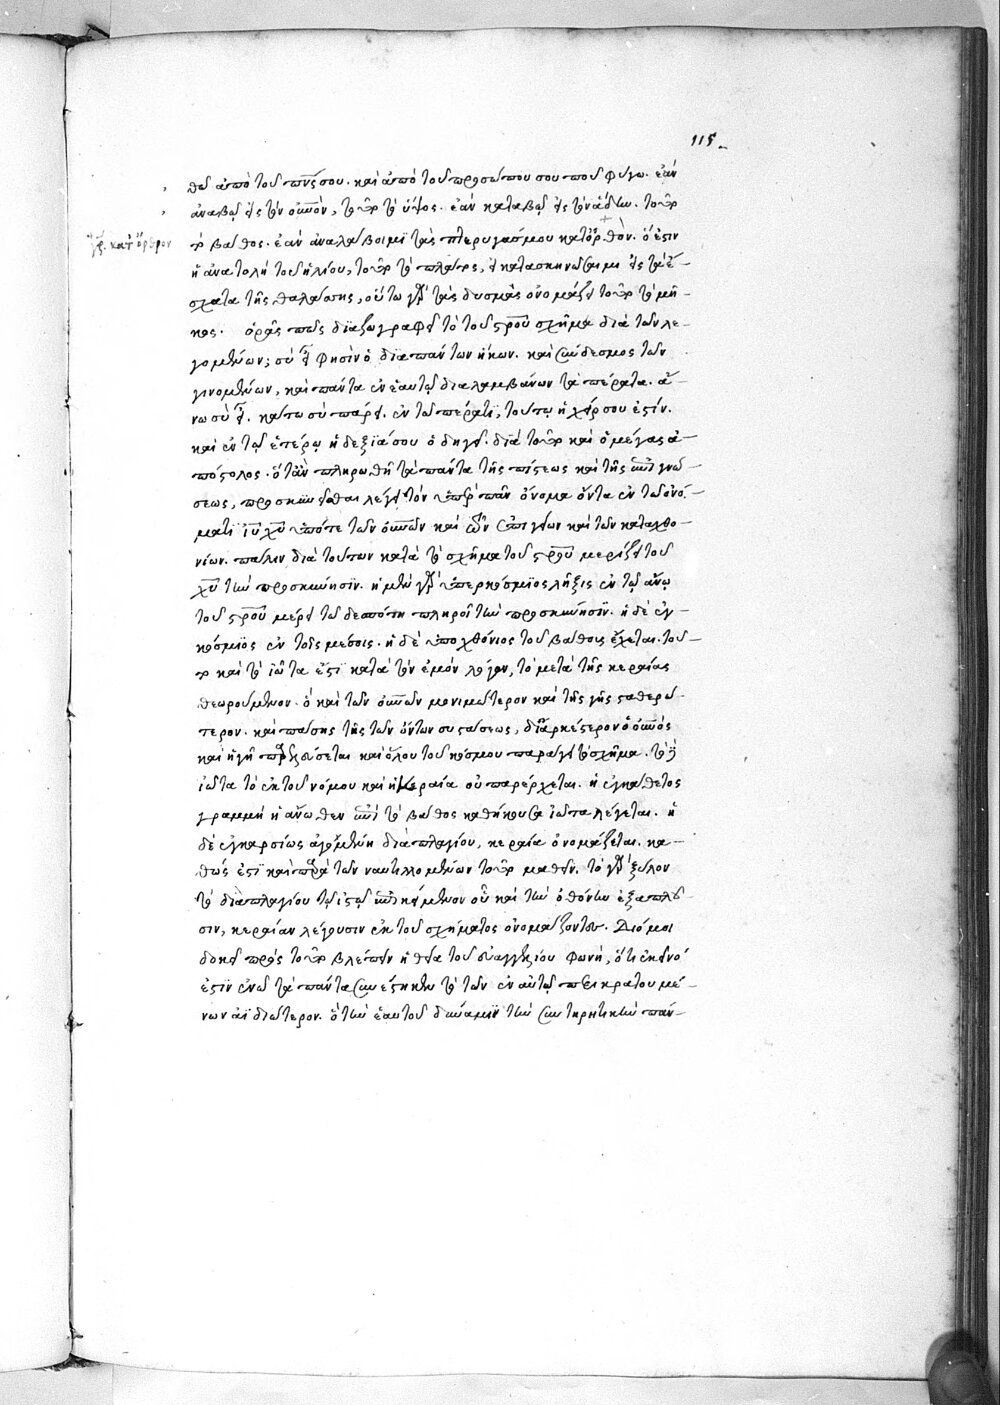 115
θῶ ἀπὸ τοῦ πν̅ς σου. καὶ ἀπὸ τοῦ προσώπου σου ποῦ φύγω. ἐὰν
ἀναβῶ εἰς τὸν οὐνὸν, τοῦτο τὸ ὕψος. ἐὰν καταβῶ εἰς τὸν ἅδην. τοῦτο
γρ. κατ' ὄρθρον
τὸ βάθος. ἐὰν ἀναλάβοιμι τὰς πτέρυγάς μου κατ' ὀρθὸν. ὅ ἐστιν
ἡ ἀνατολὴ τοῦ ἡλίου, τοῦτο τὸ πλάτος, καὶ κατασκηνώσαιμι εἰς τὰ ἔ-
σχατα τῆς θαλάσσης, οὕτω γὰρ τὰς δυσμὰς ὀνομάζει τοῦτο τὸ μῆ-
κος. ὁρᾷς πῶς διαζωγραφεῖ τὸ τοῦ στροῦ σχῆμα διὰ τῶν λε-
γομένων; σὺ εἶ φησὶν ὁ διὰ πάντων ἥκων. καὶ σύνδεσμος τῶν
γινομένων, καὶ πάντα ἐν ἑαυτῷ διαλαμβάνων τὰ πέρατα. ἄ-
νω σὺ εἶ. κάτω σὺ πάρει. ἐν τῷ πέρατι, τούτῳ ἡ χείρ σου ἐστίν.
καὶ ἐν τῷ ἑτέρῳ ἡ δεξιά σου ὁδηγεῖ. διὰ τοῦτο καὶ ὁ μέγας ἀ-
πόστολος. ὅταν πληρωθῇ τὰ πάντα τῆς πίστεως καὶ τῆς ἐπιγνώ-
σεως, προσκυνεῖσθαι λέγει τὸν ὑπὲρ πᾶν ὄνομα ὄντα ἐν τῷ ὀνό-
ματι ἰῦ χῦ ὑπό τε τῶν οὐνῶν καὶ τῶν ἐπιγείων καὶ τῶν καταχθο-
νίων. πάλιν διὰ τούτων κατὰ τὸ σχῆμα τοῦ στροῦ μερίζει τοῦ
χῦ τὴν προσκύνησιν. ἡ μὲν γὰρ ὑπερκόσμιος λῆξις ἐν τῷ ἄνω
τοῦ στροῦ μέρει τῷ δεσπότῃ πληροῖ τὴν προσκύνησιν. ἡ δὲ ἐγ-
κόσμιος ἐν τοῖς μέσοις. ἡ δὲ ὑποχθόνιος τοῦ βάθους ἔχεται. τοῦ-
το καὶ τὸ ἰῶτα ἐστὶ κατὰ τὸν ἐμὸν λόγον, τὸ μετὰ τῆς κεραίας
θεωρούμενον. ὃ καὶ τῶν οὐνῶν μονιμώτερον καὶ τῆς γῆς σταθερώ-
τερον. καὶ πάσης τῆς τῶν ὄντων συστάσεως, διαρκέστερον ὁ οὐνὸς
καὶ ἡ γῆ παρελεύσεται καὶ ὅλου τοῦ κόσμου παράγει τὸ σχῆμα. τὸ δὲ
ἰῶτα τὸ ἐκ τοῦ νόμου καὶ ἡ κεραία οὐ παρέρχεται. ἡ ἐγκάθετος
γραμμὴ ἡ ἄνωθεν ἐπὶ τὸ βάθος καθήκουσα ἰῶτα λέγεται. ἡ
δὲ ἐγκαρσίως ἀγομένη διὰ πλαγίου, κεραία ὀνομάζεται. κα-
θώς ἐστι καὶ παρὰ τῶν ναυτιλλομένων τοῦτο μαθεῖν. τὸ γὰρ ξύλον
τὸ διὰ πλαγίου τῷ ἱστῷ ἐπικείμενον οὗ καὶ τὴν ὀθόνην ἐξαπλοῦ
σιν, κεραίαν λέγουσιν ἐκ τοῦ σχήματος ὀνομάζοντες. Διό μοι
δοκεῖ πρὸς τοῦτο βλέπειν ἡ θεία τοῦ εὐαγγελίου φωνή, ὅτι ἐκεῖνό
ἐστιν ἐν ᾧ τὰ πάντα συνέστηκεν τὸ τῶν ἐν αὐτῷ περικρατουμέ-
νων ἀϊδιώτερον. ὃ τὴν ἑαυτοῦ δύναμιν τὴν συντηρητικὴν πάν-